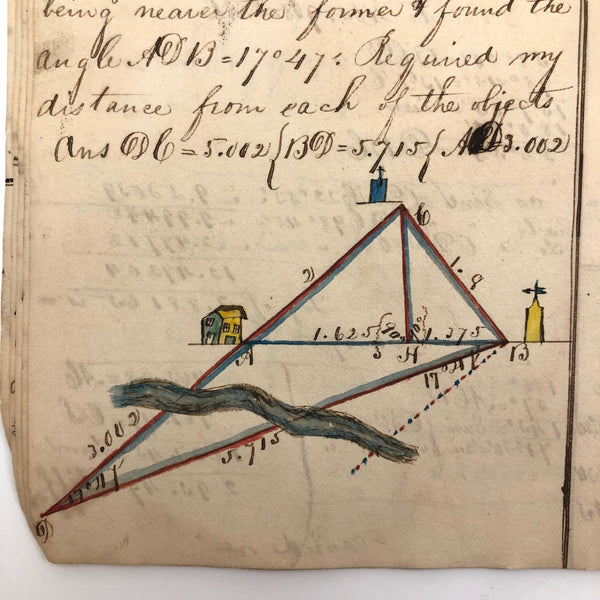 being nearer the former & found the
angle ADB = 17° 47': Required my
distance from each of the objects
Ans DC = 5.002 { BD = 5.715 { AD 3.002
C
2
1.8
1.625
1.375
3
A
H
B
17° 47'
3.002
5.715
17° 47'
D